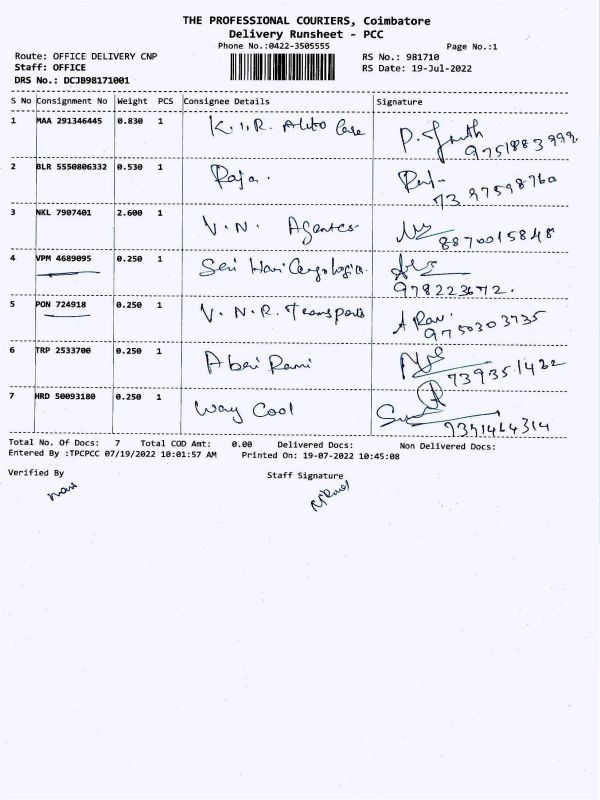 THE PROFESSIONAL COURIERS, Coimbatore
Delivery Runsheet - PCC
Phone No.:0422-3505555 Page No.:1
Route: OFFICE DELIVERY CNP RS No.: 981710
Staff: OFFICE RS Date: 19-Jul-2022
DRS No.: DCJB98171001
S No Consignment No Weight PCS Consignee Details Signature
1 MAA 291346445 0.830 1 K.I.R. Auto Case
9751883999
2 BLR 5550806332 0.530 1 Raja.
73 97598760
3 NKL 7907401 2.600 1 V.N. Agentes
8870015848
4 VPM 4689095 0.250 1 Seri Hari
978223672.
5 PON 724918 0.250 1 V.N.R. Transports A Ravi
9750303735
6 TRP 2533700 0.250 1 Abei Rami
739351422
7 HRD 50093180 0.250 1 Way Cool
9391464314
Total No. Of Docs: 7 Total COD Amt: 0.00 Delivered Docs: Non Delivered Docs:
Entered By :TPCPCC 07/19/2022 10:01:57 AM Printed On: 19-07-2022 10:45:08
Verified By Staff Signature